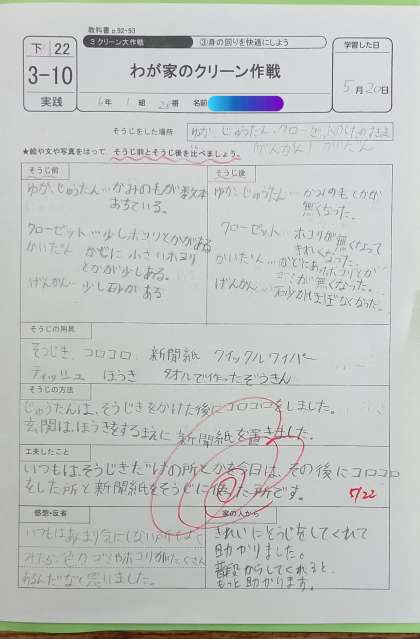 教科書 p.92-93
下 22
3-10
実践
3 クリーン大作戦
③身の回りを快適にしよう
わが家のクリーン作戦
6年 1組 番 名前
学習した日
5月20日
そうじをした場所
ゆか、じゅうたん、クローゼット
げんかん、かいだん
★絵や文や写真をはって、そうじ前とそうじ後を比べましょう。
そうじ前
ゆか、じゅうたん…かみのもが数本
おちている。
クローゼット…少しホコリとかがある
かいだん かどに小さいホコリ
とかが少しある。
げんかん…少し砂がある
そうじ後
ゆか、じゅうたん…かみのもとかが
無くなった。
クローゼット…ホコリが無くなって
きれいになった。
かいだん…かどにあったホコリとか
ゴミが無くなった。
げんかん…砂がほぼなくなった。
そうじの用具
そうじき、コロコロ 新聞紙 クイックルワイパー
ティッシュ ほうき タオルで作ったぞうきん
そうじの方法
じゅうたんは、そうじきをかけた後にコロコロをしました。
玄関は、ほうきをするまえに新聞紙を置きました。
工夫したこと
いつもは、そうじきだけの所とかを今日は、その後にコロコロ
をした所と新聞紙をそうじに使った所です。
5/22
感想・反省
いつもはあまり気にしない所もよく
みたら、色々ゴミやホコリがたくさん
あるんだなと思いました。
家の人から
きれいにそうじをしてくれて
助かりました。
普段からしてくれると、
もっと助かります。